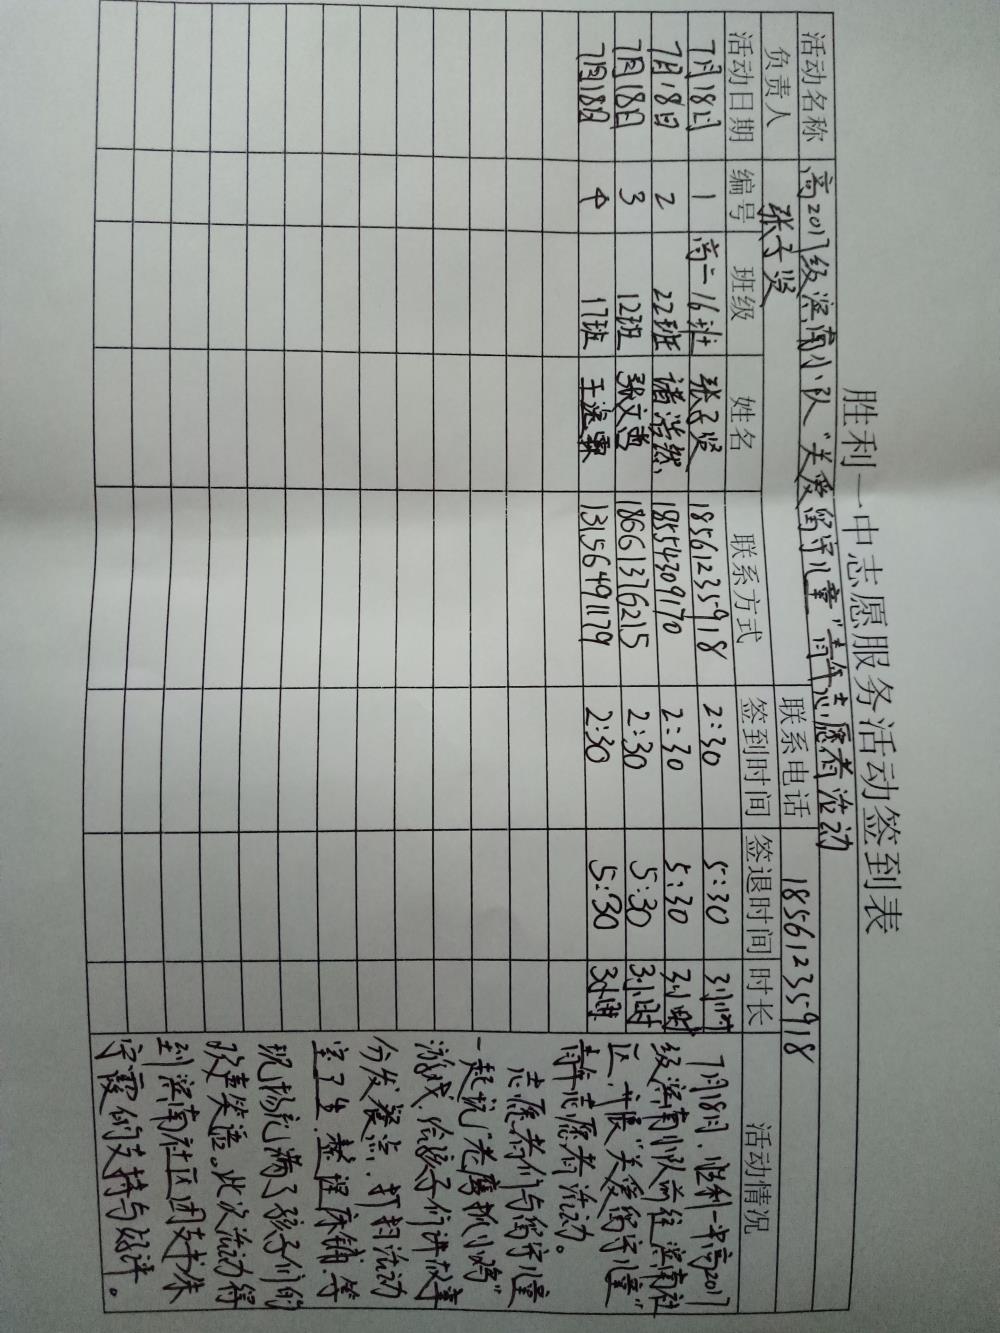 胜利一中志愿服务活动签到表
活动名称 高2017级滨南小队"关爱留守儿童"青年志愿者活动
负责人 张子贤 联系电话 18561235918
活动日期 编号 班级 姓名 联系方式 签到时间 签退时间 时长 活动情况
7月18日 1 高二16班 张子贤 18561235918 2:30 5:30 3小时
7月18日 2 22班 诸浩然 18554309170 2:30 5:30 3小时
7月18日 3 12班 张文 18661376215 2:30 5:30 3小时
7月18日 4 17班 王 13156491179 2:30 5:30 3小时
7月18日,胜利一中高2017
级滨南小队前往滨南社
区,开展"关爱留守儿童"
青年志愿者活动。
志愿者们与留守儿童
一起玩"老鹰抓小鸡"
游戏,给孩子们讲故事
分发餐点,打扫活动
室卫生,整理床铺等
现场充满了孩子们的
欢声笑语。此次活动得
到滨南社区团支书朱
的支持与好评。